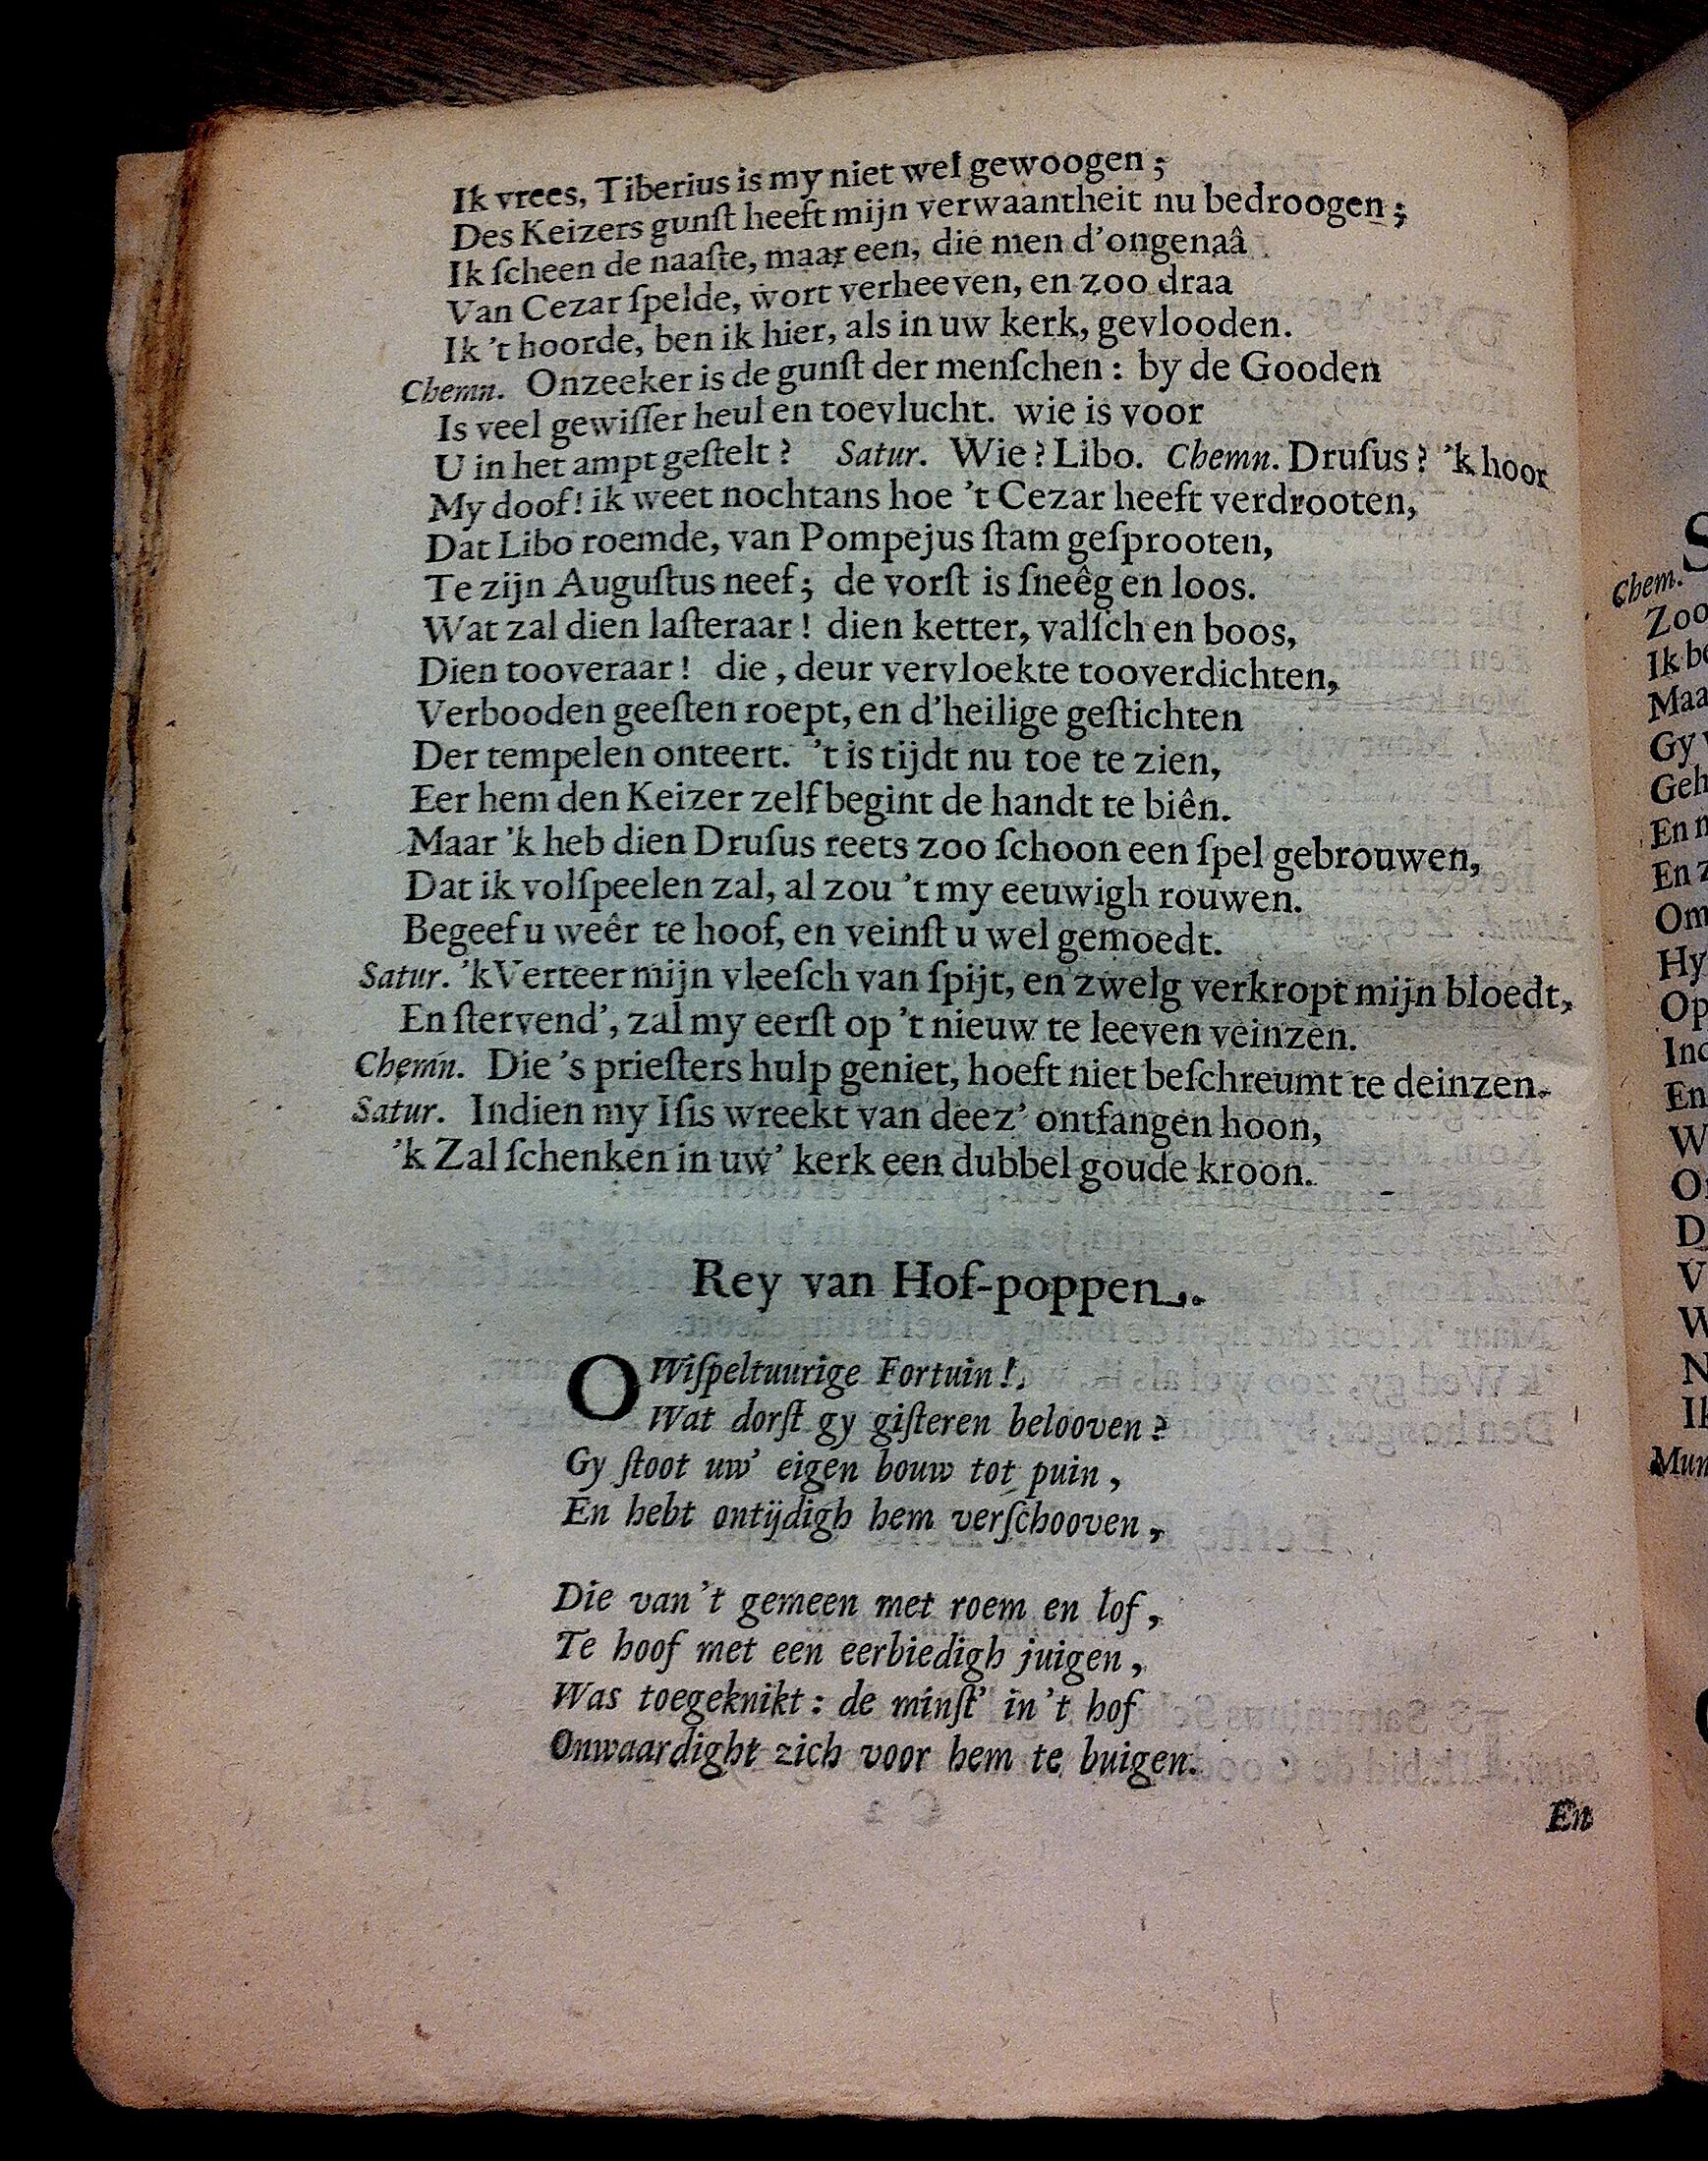 Ik vrees, Tiberius is my niet wel gewoogen;
Des Keizers gunſt heeft mijn verwaantheit nu bedroogen;
Ik ſcheen de naaſte, maar een, die men d'ongenaâ
Van Cezar ſpelde, wort verheeven, en zoo draa
Ik 't hoorde, ben ik hier, als in uw kerk, gevlooden.
Chemn. Onzeeker is de gunſt der menſchen: by de Gooden
Is veel gewiſſer heul en toevlucht. wie is voor
U in het ampt geſtelt? Satur. Wie? Libo. Chemn. Druſus? 'k hoor
My doof! ik weet nochtans hoe 't Cezar heeft verdrooten,
Dat Libo roemde, van Pompejus ſtam geſprooten,
Te zijn Auguſtus neef; de vorſt is ſneêg en loos.
Wat zal dien laſteraar! dien ketter, valſch en boos,
Dien tooveraar! die, deur vervloekte tooverdichten,
Verbooden geeſten roept, en d'heilige geſtichten
Der tempelen onteert. 't is tijdt nu toe te zien,
Eer hem den Keizer zelf begint de handt te biên.
Maar 'k heb dien Druſus reets zoo ſchoon een ſpel gebrouwen,
Dat ik volſpeelen zal, al zou 't my eeuwigh rouwen.
Begeef u weêr te hoof, en veinſt u wel gemoedt.
Satur. 'k Verteer mijn vleeſch van ſpijt, en zwelg verkropt mijn bloedt,
En ſtervend', zal my eerſt op 't nieuw te leeven veinzen.
Chemn. Die 's prieſters hulp geniet, hoeft niet beſchreumt te deinzen.
Satur. Indien my Iſis wreekt van deez' ontfangen hoon,
'k Zal ſchenken in uw' kerk een dubbel goude kroon.
Rey van Hof-poppen.
O Wiſpeltuurige Fortuin!
Wat dorſt gy giſteren belooven?
Gy ſtoot uw' eigen bouw tot puin,
En hebt ontijdigh hem verſchooven,
Die van 't gemeen met roem en lof,
Te hoof met een eerbiedigh juigen,
Was toegeknikt: de minſt' in 't hof
Onwaardight zich voor hem te buigen.
En
S
Chem.
Zoo
Ik
Maa
Gy
Geh
En
En
Om
Hy
Op
En